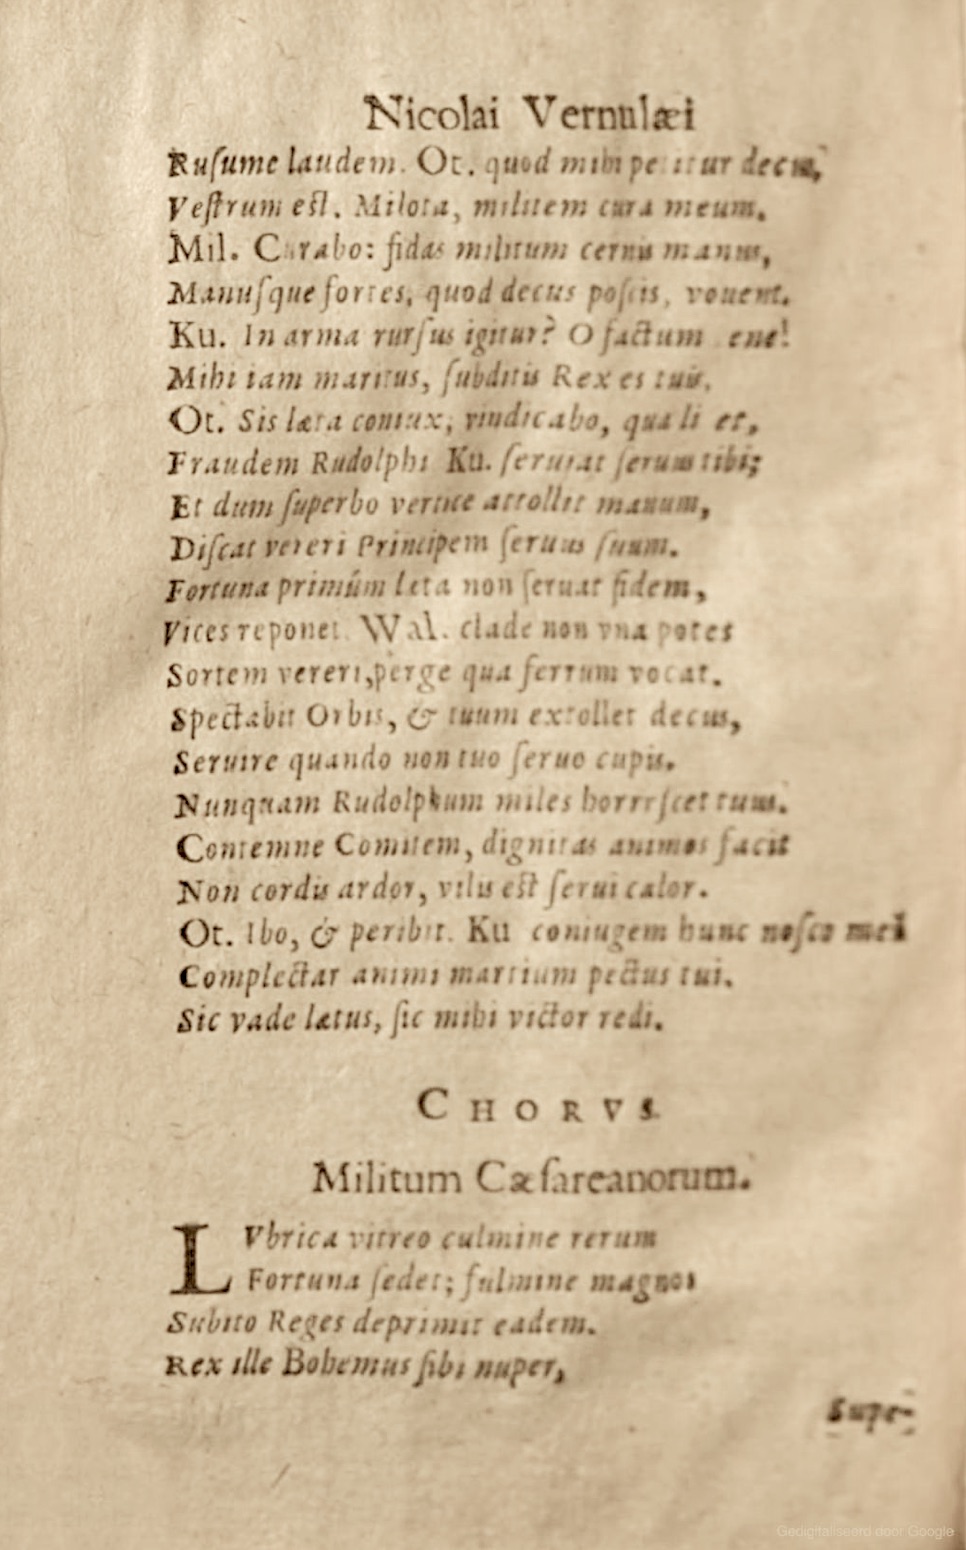 Nicolai Vernulæi
Rusume laudem. Ot. quod mihi decus,
Vestrum est. Milota, militem cura meum.
Mil. Curabo: fidas militum cerno manus,
Manusque fortes, quod decus poscis, vouent.
Ku. In arma rursus igitur? O factum bene!
Mihi iam maritus, subditis Rex es tuis.
Ot. Sis læta coniux, vindicabo, qua licet,
Fraudem Rudolphi Ku. seruiat seruus tibi;
Et dum superbo vertice attollit manum,
Discat vereri Principem seruus suum.
Fortuna primúm leta non seruat fidem,
Vices reponet. Wal. clade non vna potes
Sortem vereri, perge qua ferrum vocat.
Spectabit Orbis, & tuum extollet decus,
Seruire quando non tuo seruo cupis.
Nunquam Rudolphum miles horrescet tuus.
Contemne Comitem, dignitas animos facit
Non cordis ardor, vilis est serui calor.
Ot. Ibo, & peribit. Ku coniugem hunc nosco mei
Complectar animi martium pectus tui.
Sic vade lætus, sic mihi victor redi.
CHORVS.
Militum Cæsareanorum.
LVbrica vitreo culmine rerum
Fortuna sedet; fulmine magnos
Subito Reges deprimit eadem.
Rex ille Bohemus sibi nuper,
Supe-
Gedigitaliseerd door Google